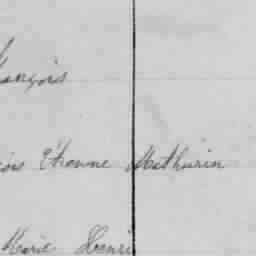 ançois
ois Etienne Mathurin
Marie Henri